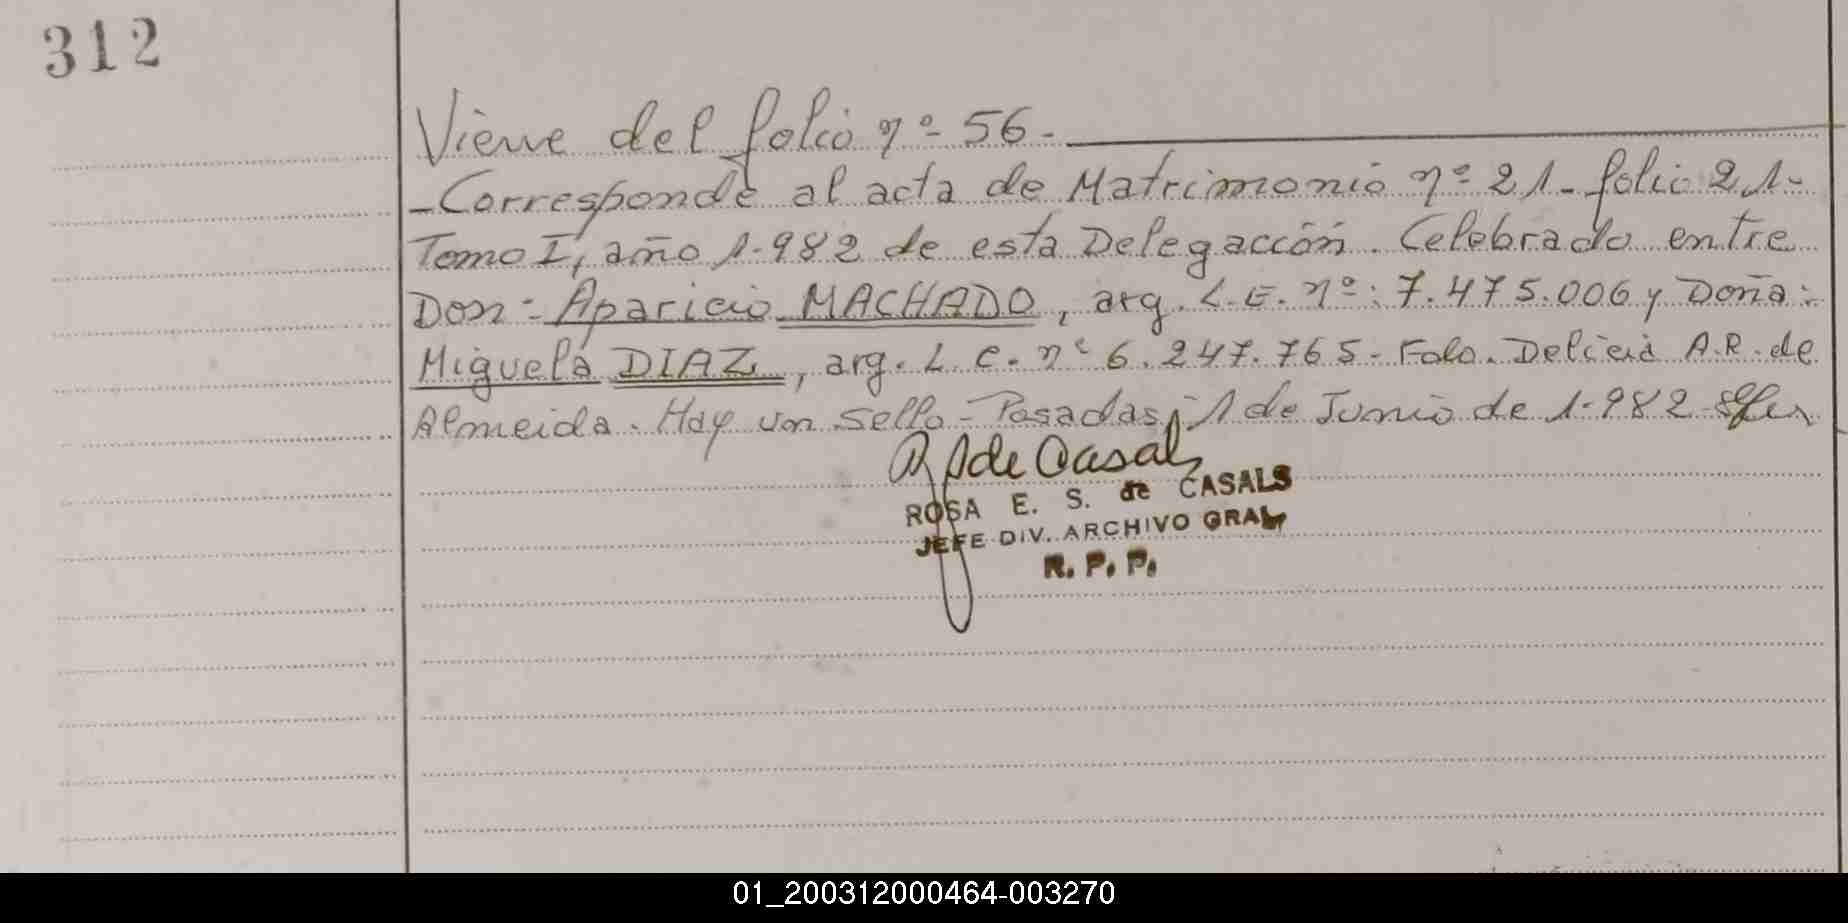 312
Viene del folio nº 56.-
-Corresponde al acta de Matrimonio nº 21- folio 21-
Tomo I, año 1.982 de esta Delegacción. Celebrado entre
Don: Aparicio MACHADO, arg. L.E. nº: 7.475.006 y Doña:
Miguela DIAZ, arg. L.C. nº 6.247.765- Fdo. Delicia A.R. de
Almeida. Hay un sello- Posadas, 1 de Junio de 1.982-
de Casals
ROSA E. S. de CASALS
JEFE DIV. ARCHIVO GRAL
R. P. P.
01_200312000464-003270